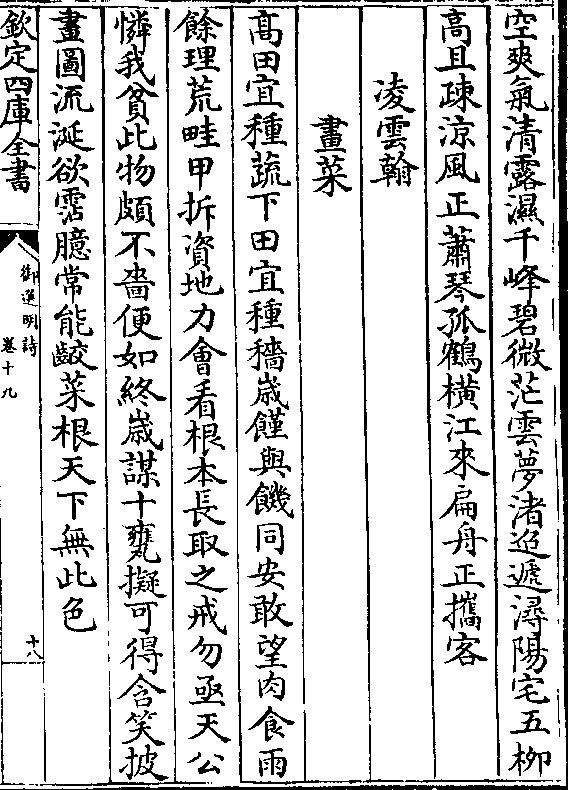 空爽氣清露濕千峰碧微茫雲夢渚迢遞潯陽宅五柳
高且疎涼風正蕭琴孤鶴橫江來扁舟正攜客
凌雲翰
畫菜
髙田宜種蔬下田宜種穡嵗饉與饑同安敢望肉食雨
餘理荒畦甲拆資地力會看根本長取之戒勿亟天公
憐我貧此物頗不嗇便如終嵗謀十甕擬可得含笑披
畫圖流涎欲霑臆常能齩菜根天下無此色
欽定四庫全書
御選明詩
卷十九
十八